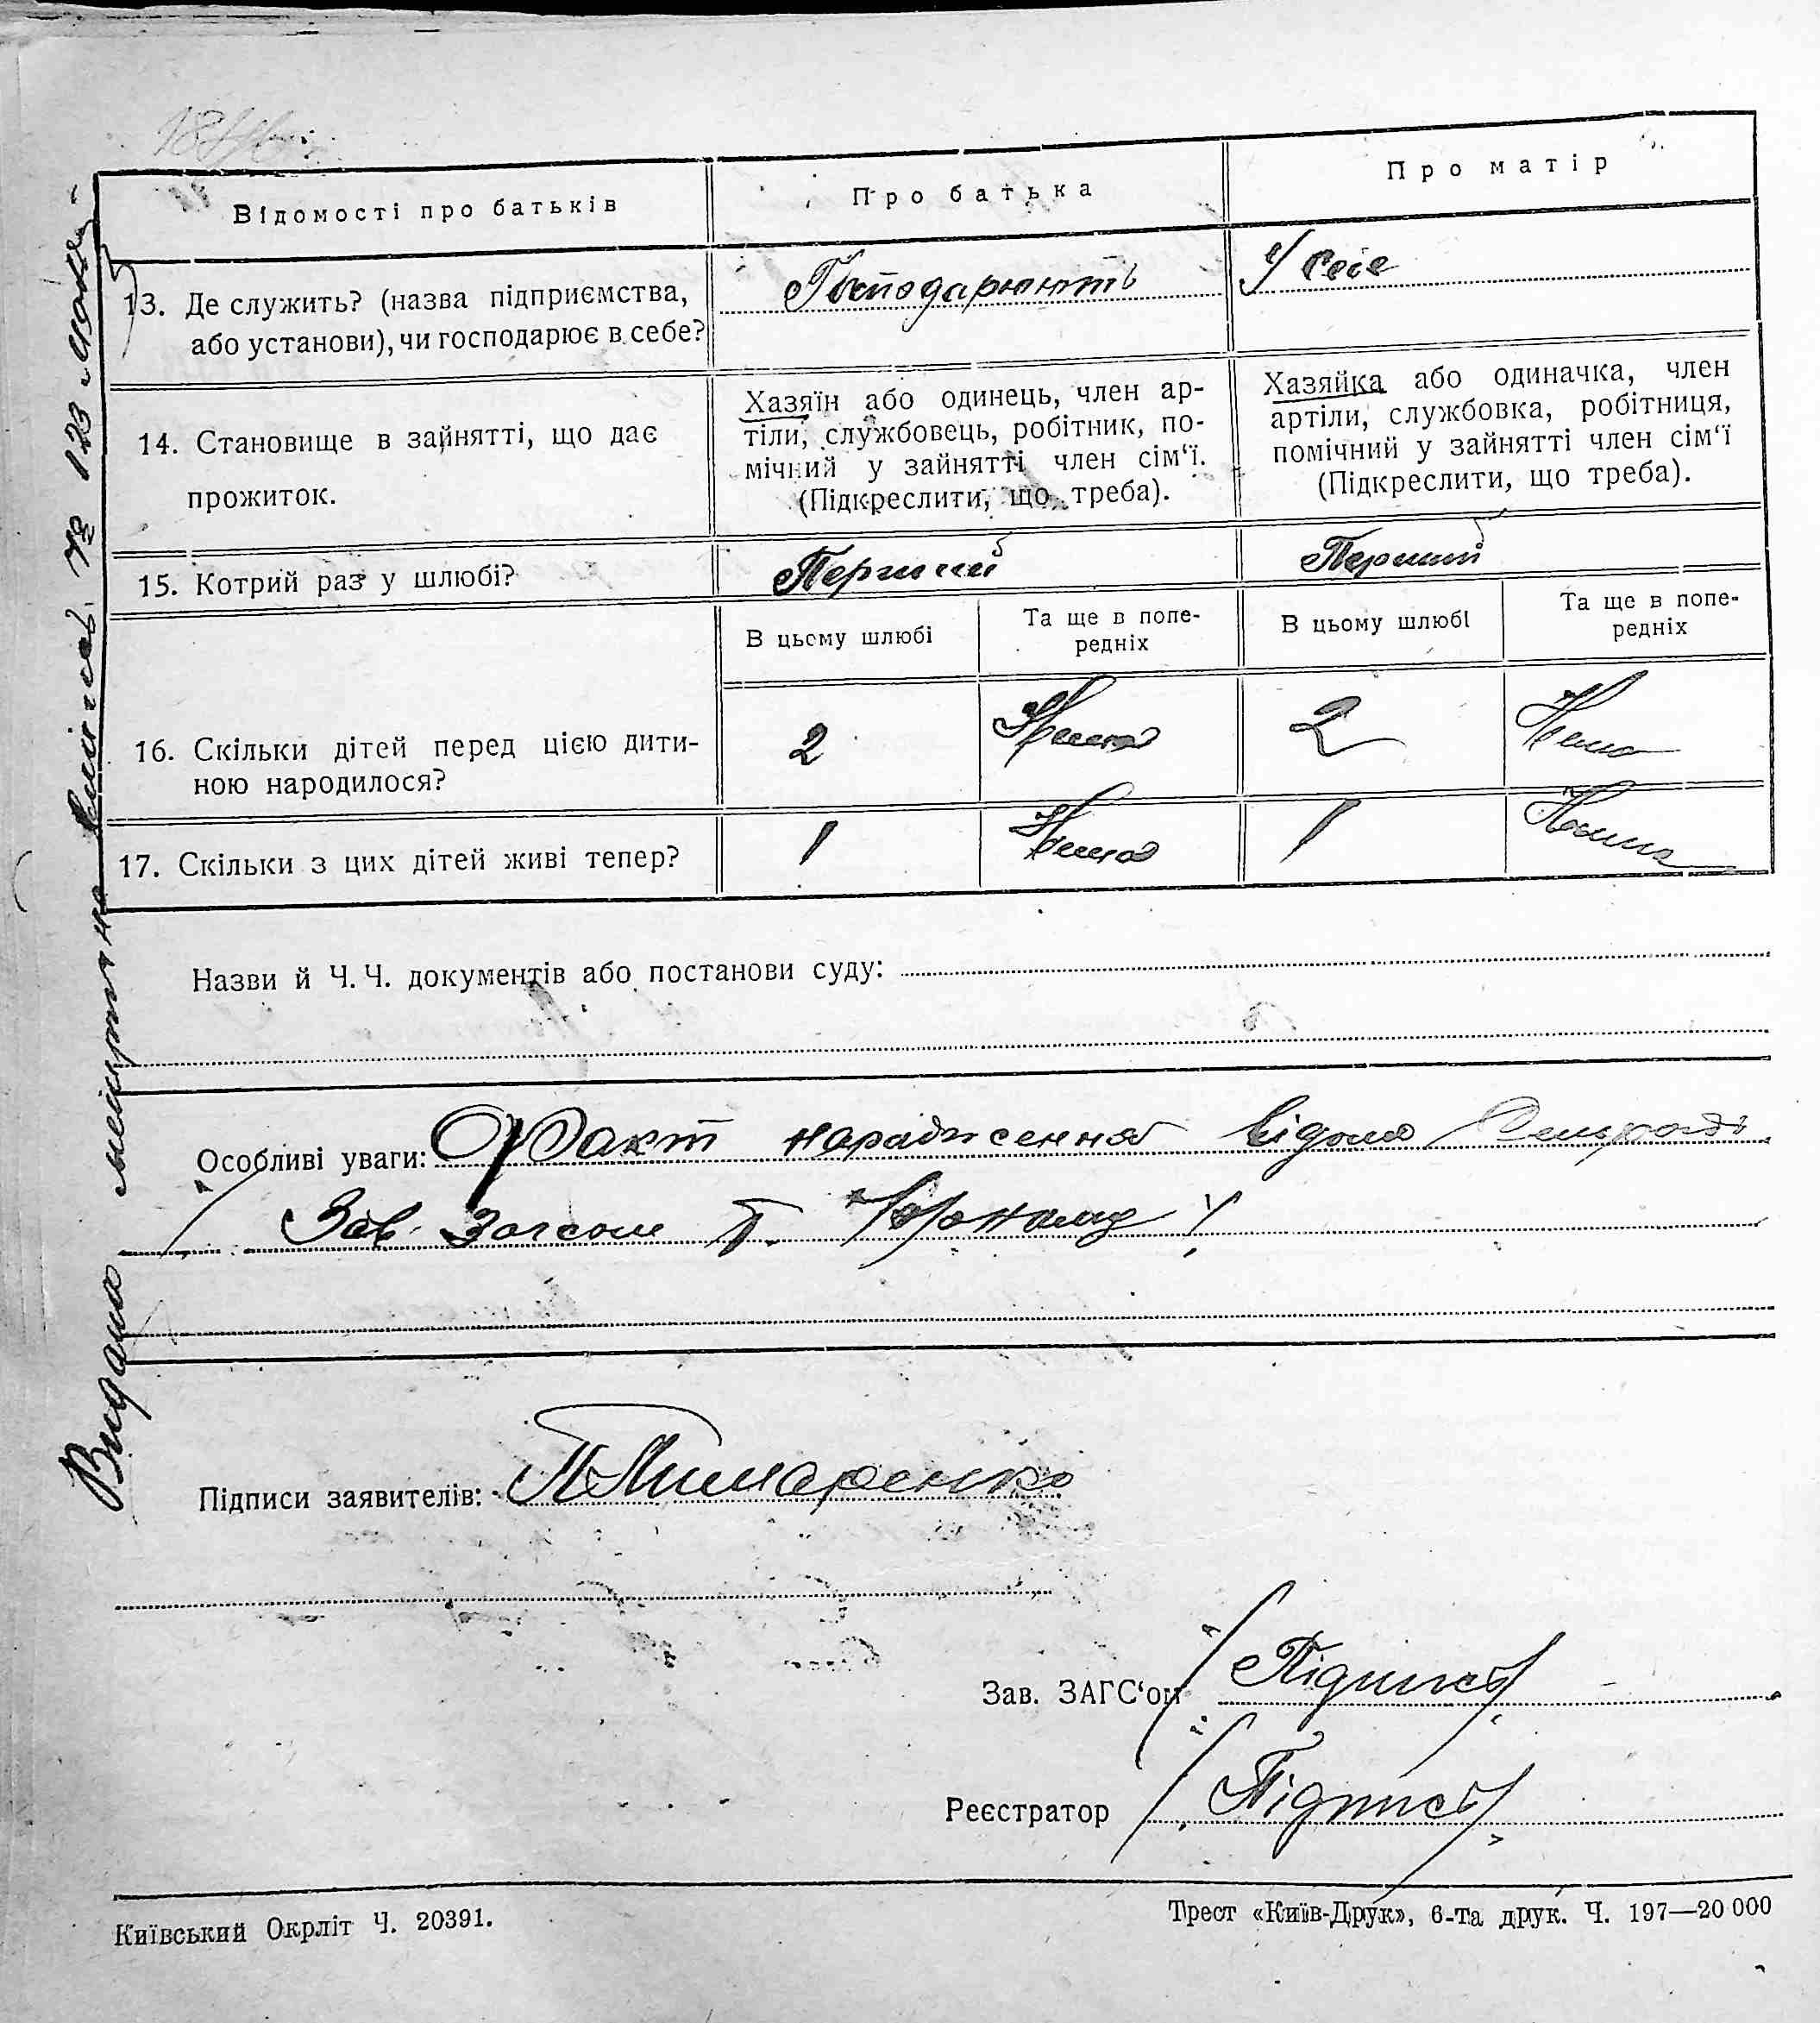 Відомості про батьків
Про батька
Про матір
13. Де служить? (назва підприємства,
або установи), чи господарює в себе?
Господарюють
У себе
14. Становище в зайнятті, що дає
прожиток.
Хазяїн або одинець, член ар-
тіли, службовець, робітник, по-
мічний у зайнятті член сім‘ї.
(Підкреслити, що треба).
Хазяйка або одиначка, член
артіли, службовка, робітниця,
помічний у зайнятті член сім‘ї
(Підкреслити, що треба).
15. Котрий раз у шлюбі?
Перший
Перший
В цьому шлюбі
Та ще в попе-
редніх
В цьому шлюбі
Та ще в попе-
редніх
16. Скільки дітей перед цією дити-
ною народилося?
2
Нема
2
Нема
17. Скільки з цих дітей живі тепер?
1
Нема
1
Нема
Назви й Ч. Ч. документів або постанови суду:
Особливі уваги: Факт народження відомо Сельраді
Зав. Загсом
Підписи заявителів:
Зав. ЗАГС‘ом /Підпись/
Реєстратор /Підпись/
Київський Окрліт Ч. 20391.
Трест «Київ-Друк», 6-та друк. Ч. 197—20 000
Видано № 123